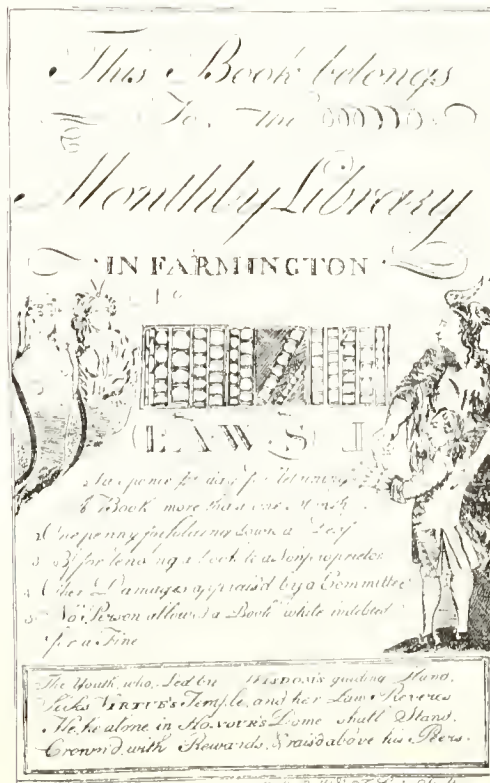 This Book belongs
To the
Monthly Library
IN FARMINGTON
LAWS
pence pr day for
a Book more than one Month
2 One penny for folding down a Leaf
3 3/ for lending a Book to a Nonproprietor
4 Other Damages apprais'd by a Committee
5 No Person allow'd a Book while indebted
for a Fine
The Youth who, Led by WISDOM'S guiding Hand,
Seeks VIRTUE'S Temple, and her Law Reveres
He, he alone in HONOUR'S Dome shall Stand,
Crown'd with Rewards, & rais'd above his Peers.